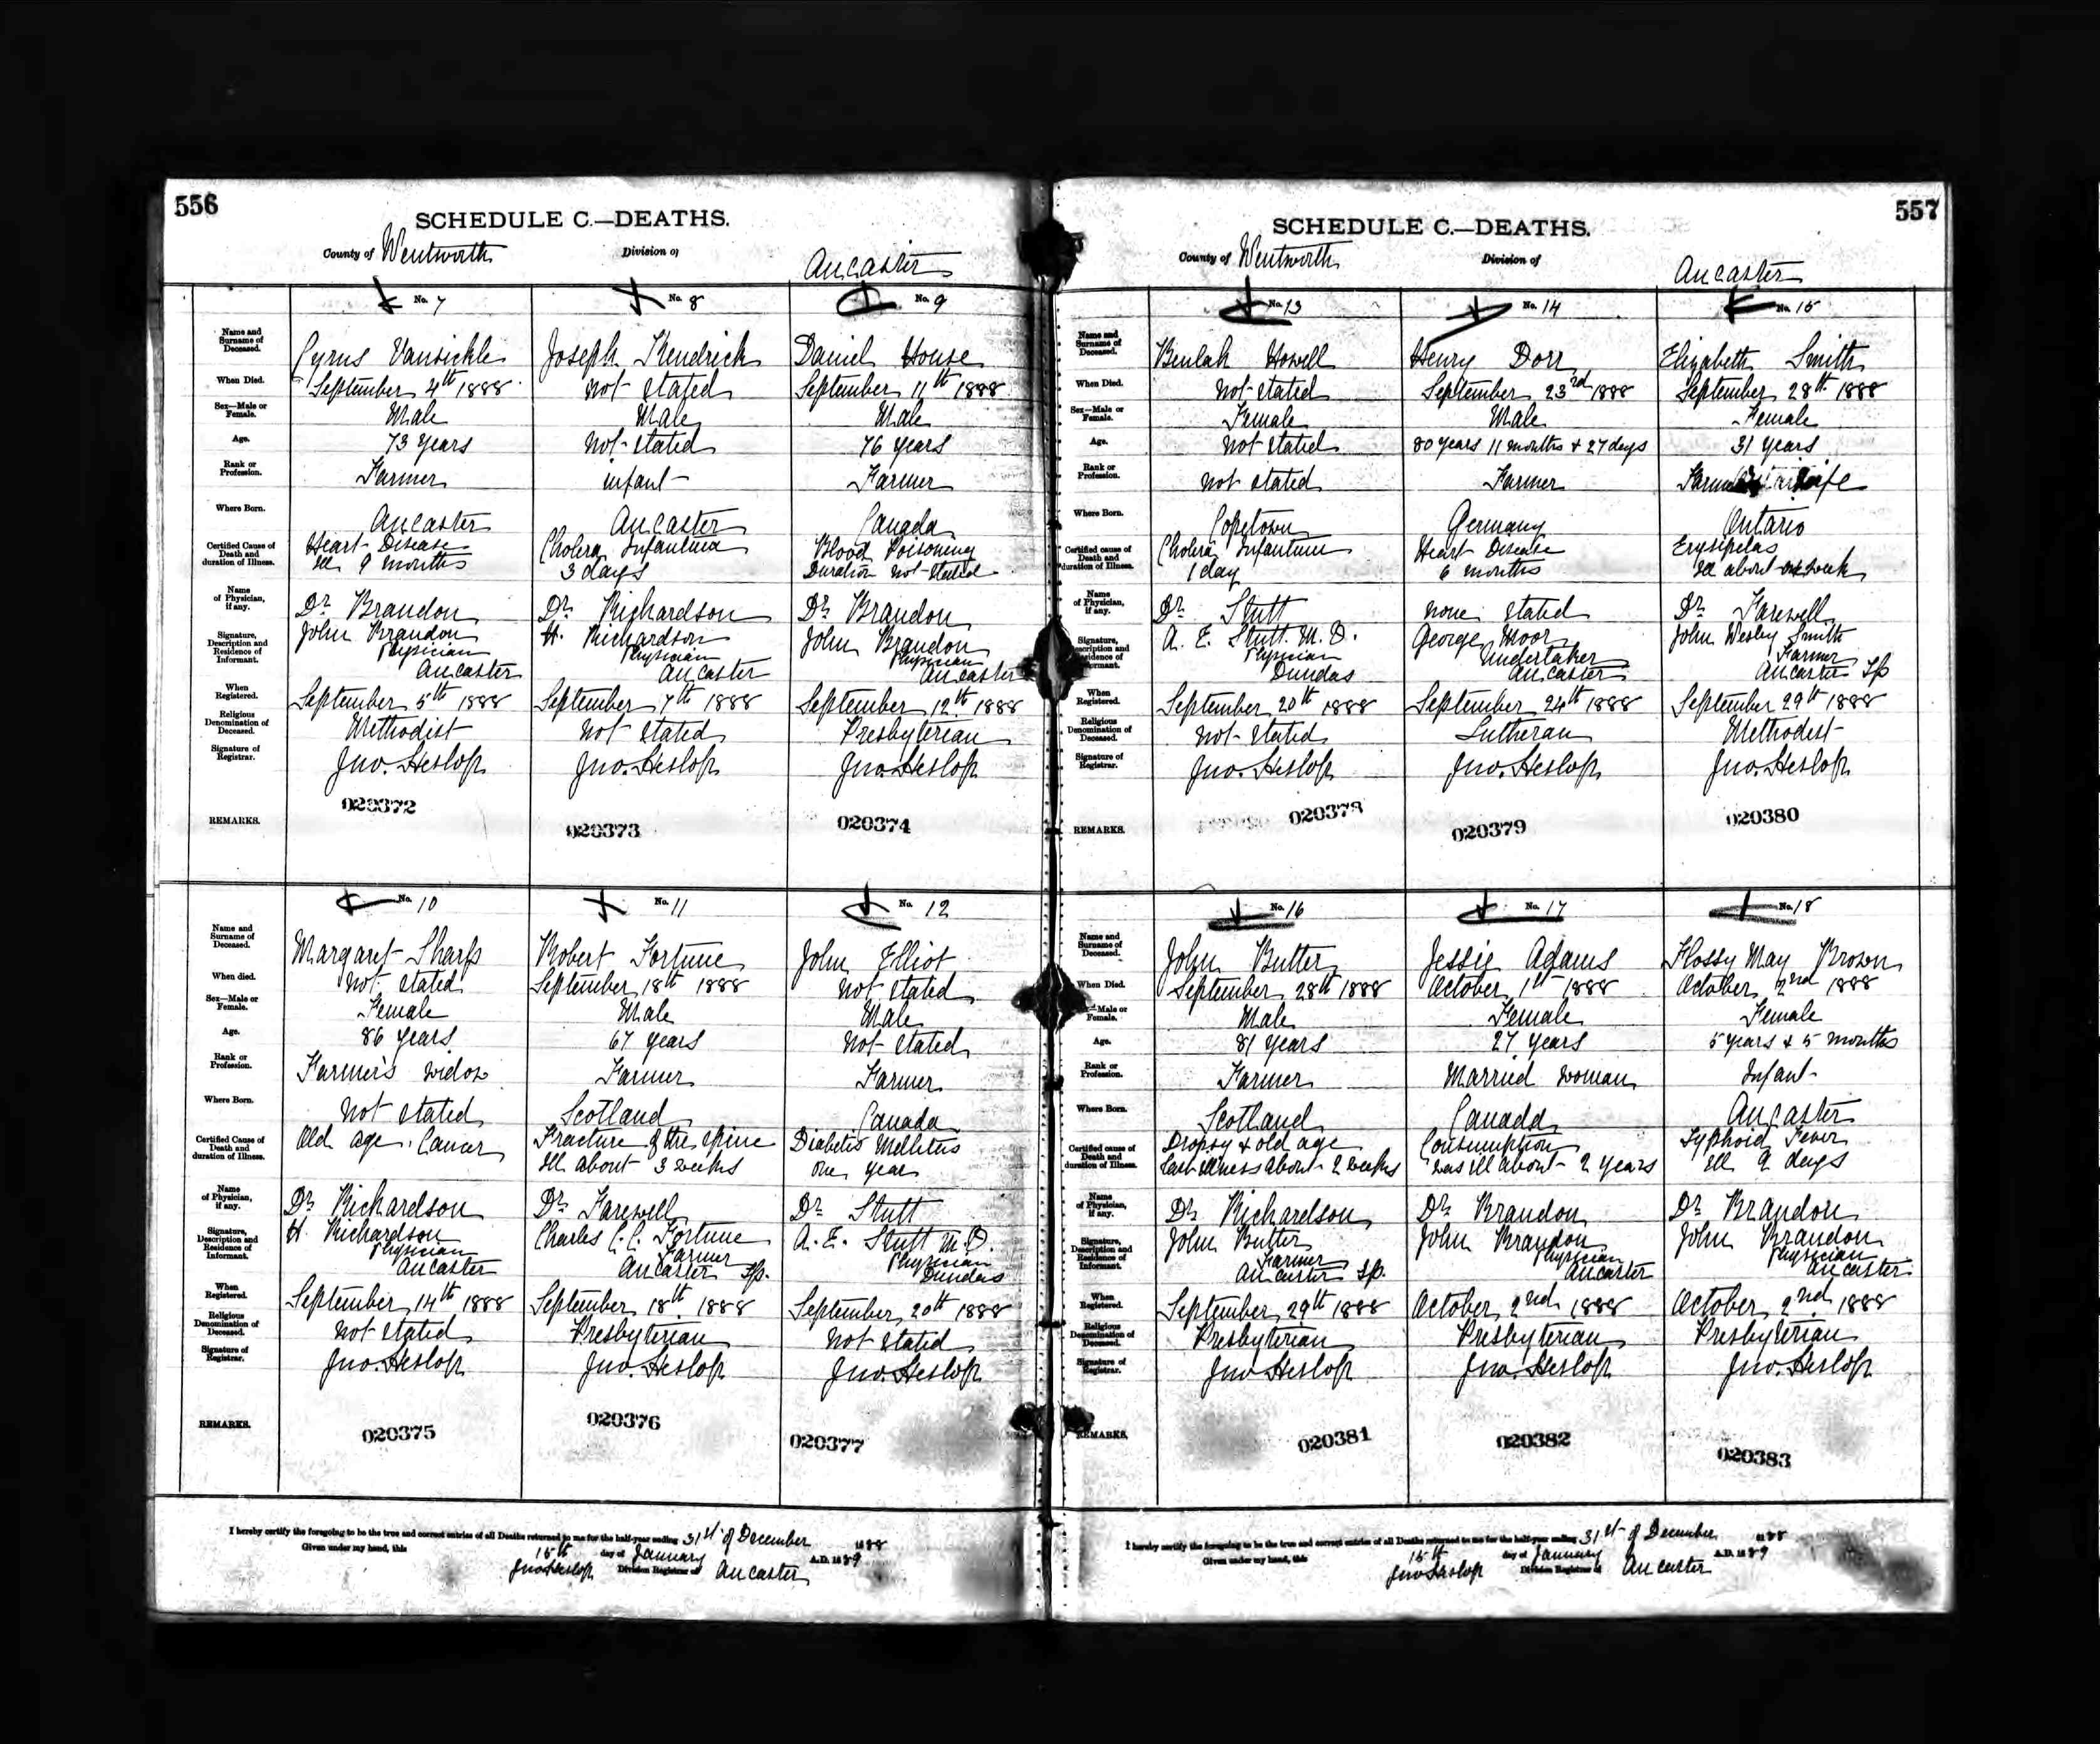 556
SCHEDULE C.—DEATHS.
County of Wentworth Division of Ancaster
No. 7 No. 8 No. 9
Name and Surname of Deceased. Cyrus Vansickle Joseph Kendrick Daniel House
When Died. September 4th 1888 not stated September 11th 1888
Sex—Male or Female. Male Male Male
Age. 73 years not stated 76 years
Rank or Profession. Farmer infant Farmer
Where Born. Ancaster Ancaster Canada
Certified Cause of Death and duration of Illness. Heart Disease Cholera Infantum Blood Poisoning
Ill 9 months 3 days Duration not stated
Name of Physician, if any. Dr Brandon Dr Richardson Dr Brandon
Signature, Description and Residence of Informant. John Brandon H. Richardson John Brandon
Physician Physician Physician
Ancaster Ancaster Ancaster
When Registered. September 5th 1888 September 7th 1888 September 12th 1888
Religious Denomination of Deceased. Methodist not stated Presbyterian
Signature of Registrar. Jno. Heslop Jno. Heslop Jno. Heslop
REMARKS. 020372 020373 020374
No. 10 No. 11 No. 12
Name and Surname of Deceased. Margaret Sharp Robert Fortune John Elliot
When died. not stated September 18th 1888 not stated
Sex—Male or Female. Female Male Male
Age. 86 years 67 years not stated
Rank or Profession. Farmer's widow Farmer Farmer
Where Born. not stated Scotland Canada
Certified Cause of Death and duration of Illness. Old age, Cancer Fracture of the spine Diabetis Mellitus
Ill about 3 weeks one year
Name of Physician, if any. Dr Richardson Dr Farewell Dr Stutt
Signature, Description and Residence of Informant. H. Richardson Charles C. C. Fortune A. E. Stutt M.D.
Physician Farmer Physician
Ancaster Ancaster Tp. Dundas
When Registered. September 14th 1888 September 18th 1888 September 20th 1888
Religious Denomination of Deceased. not stated Presbyterian not stated
Signature of Registrar. Jno. Heslop Jno. Heslop Jno. Heslop
REMARKS. 020375 020376 020377
I hereby certify the foregoing to be the true and correct entries of all Deaths returned to me for the half-year ending 31st of December 1888
Given under my hand, this 15th day of January A.D. 1889
Jno Heslop Division Registrar of Ancaster
557
SCHEDULE C.—DEATHS.
County of Wentworth Division of Ancaster
No. 13 No. 14 No. 15
Name and Surname of Deceased. Beulah Howell Henry Dorr Elizabeth Smith
When Died. not stated September 23rd 1888 September 28th 1888
Sex—Male or Female. Female Male Female
Age. not stated 80 years 11 months & 27 days 31 years
Rank or Profession. not stated Farmer wife
Where Born. Copetown Germany Ontario
Certified cause of Death and duration of Illness. Cholera Infantum Heart Disease Erysipelas
1 day 6 months Ill about one week
Name of Physician, if any. Dr Stutt none stated Dr Farewell
Signature, Description and Residence of Informant. A. E. Stutt M.D. George Moor John Wesley Smith
Physician Undertaker Farmer
Dundas Ancaster Ancaster Tp
When Registered. September 20th 1888 September 24th 1888 September 29th 1888
Religious Denomination of Deceased. not stated Lutheran Methodist
Signature of Registrar. Jno. Heslop Jno. Heslop Jno. Heslop
REMARKS. 020378 020379 020380
No. 16 No. 17 No. 18
Name and Surname of Deceased. John Butter Jessie Adams Flossy May Brown
When Died. September 28th 1888 October 1st 1888 October 2nd 1888
Sex—Male or Female. Male Female Female
Age. 81 years 27 years 5 years & 5 months
Rank or Profession. Farmer Married woman Infant
Where Born. Scotland Canada Ancaster
Certified cause of Death and duration of Illness. Dropsy & old age Consumption Typhoid Fever
last illness about 2 weeks was ill about 2 years Ill 9 days
Name of Physician, if any. Dr Richardson Dr Brandon Dr Brandon
Signature, Description and Residence of Informant. John Butter John Brandon John Brandon
Farmer Physician Physician
Ancaster Tp. Ancaster Ancaster
When Registered. September 29th 1888 October 2nd 1888 October 2nd 1888
Religious Denomination of Deceased. Presbyterian Presbyterian Presbyterian
Signature of Registrar. Jno Heslop Jno. Heslop Jno. Heslop
REMARKS. 020381 020382 020383
I hereby certify the foregoing to be the true and correct entries of all Deaths returned to me for the half-year ending 31st of December 1888
Given under my hand, this 15th day of January A.D. 1889
Jno Heslop Division Registrar of Ancaster